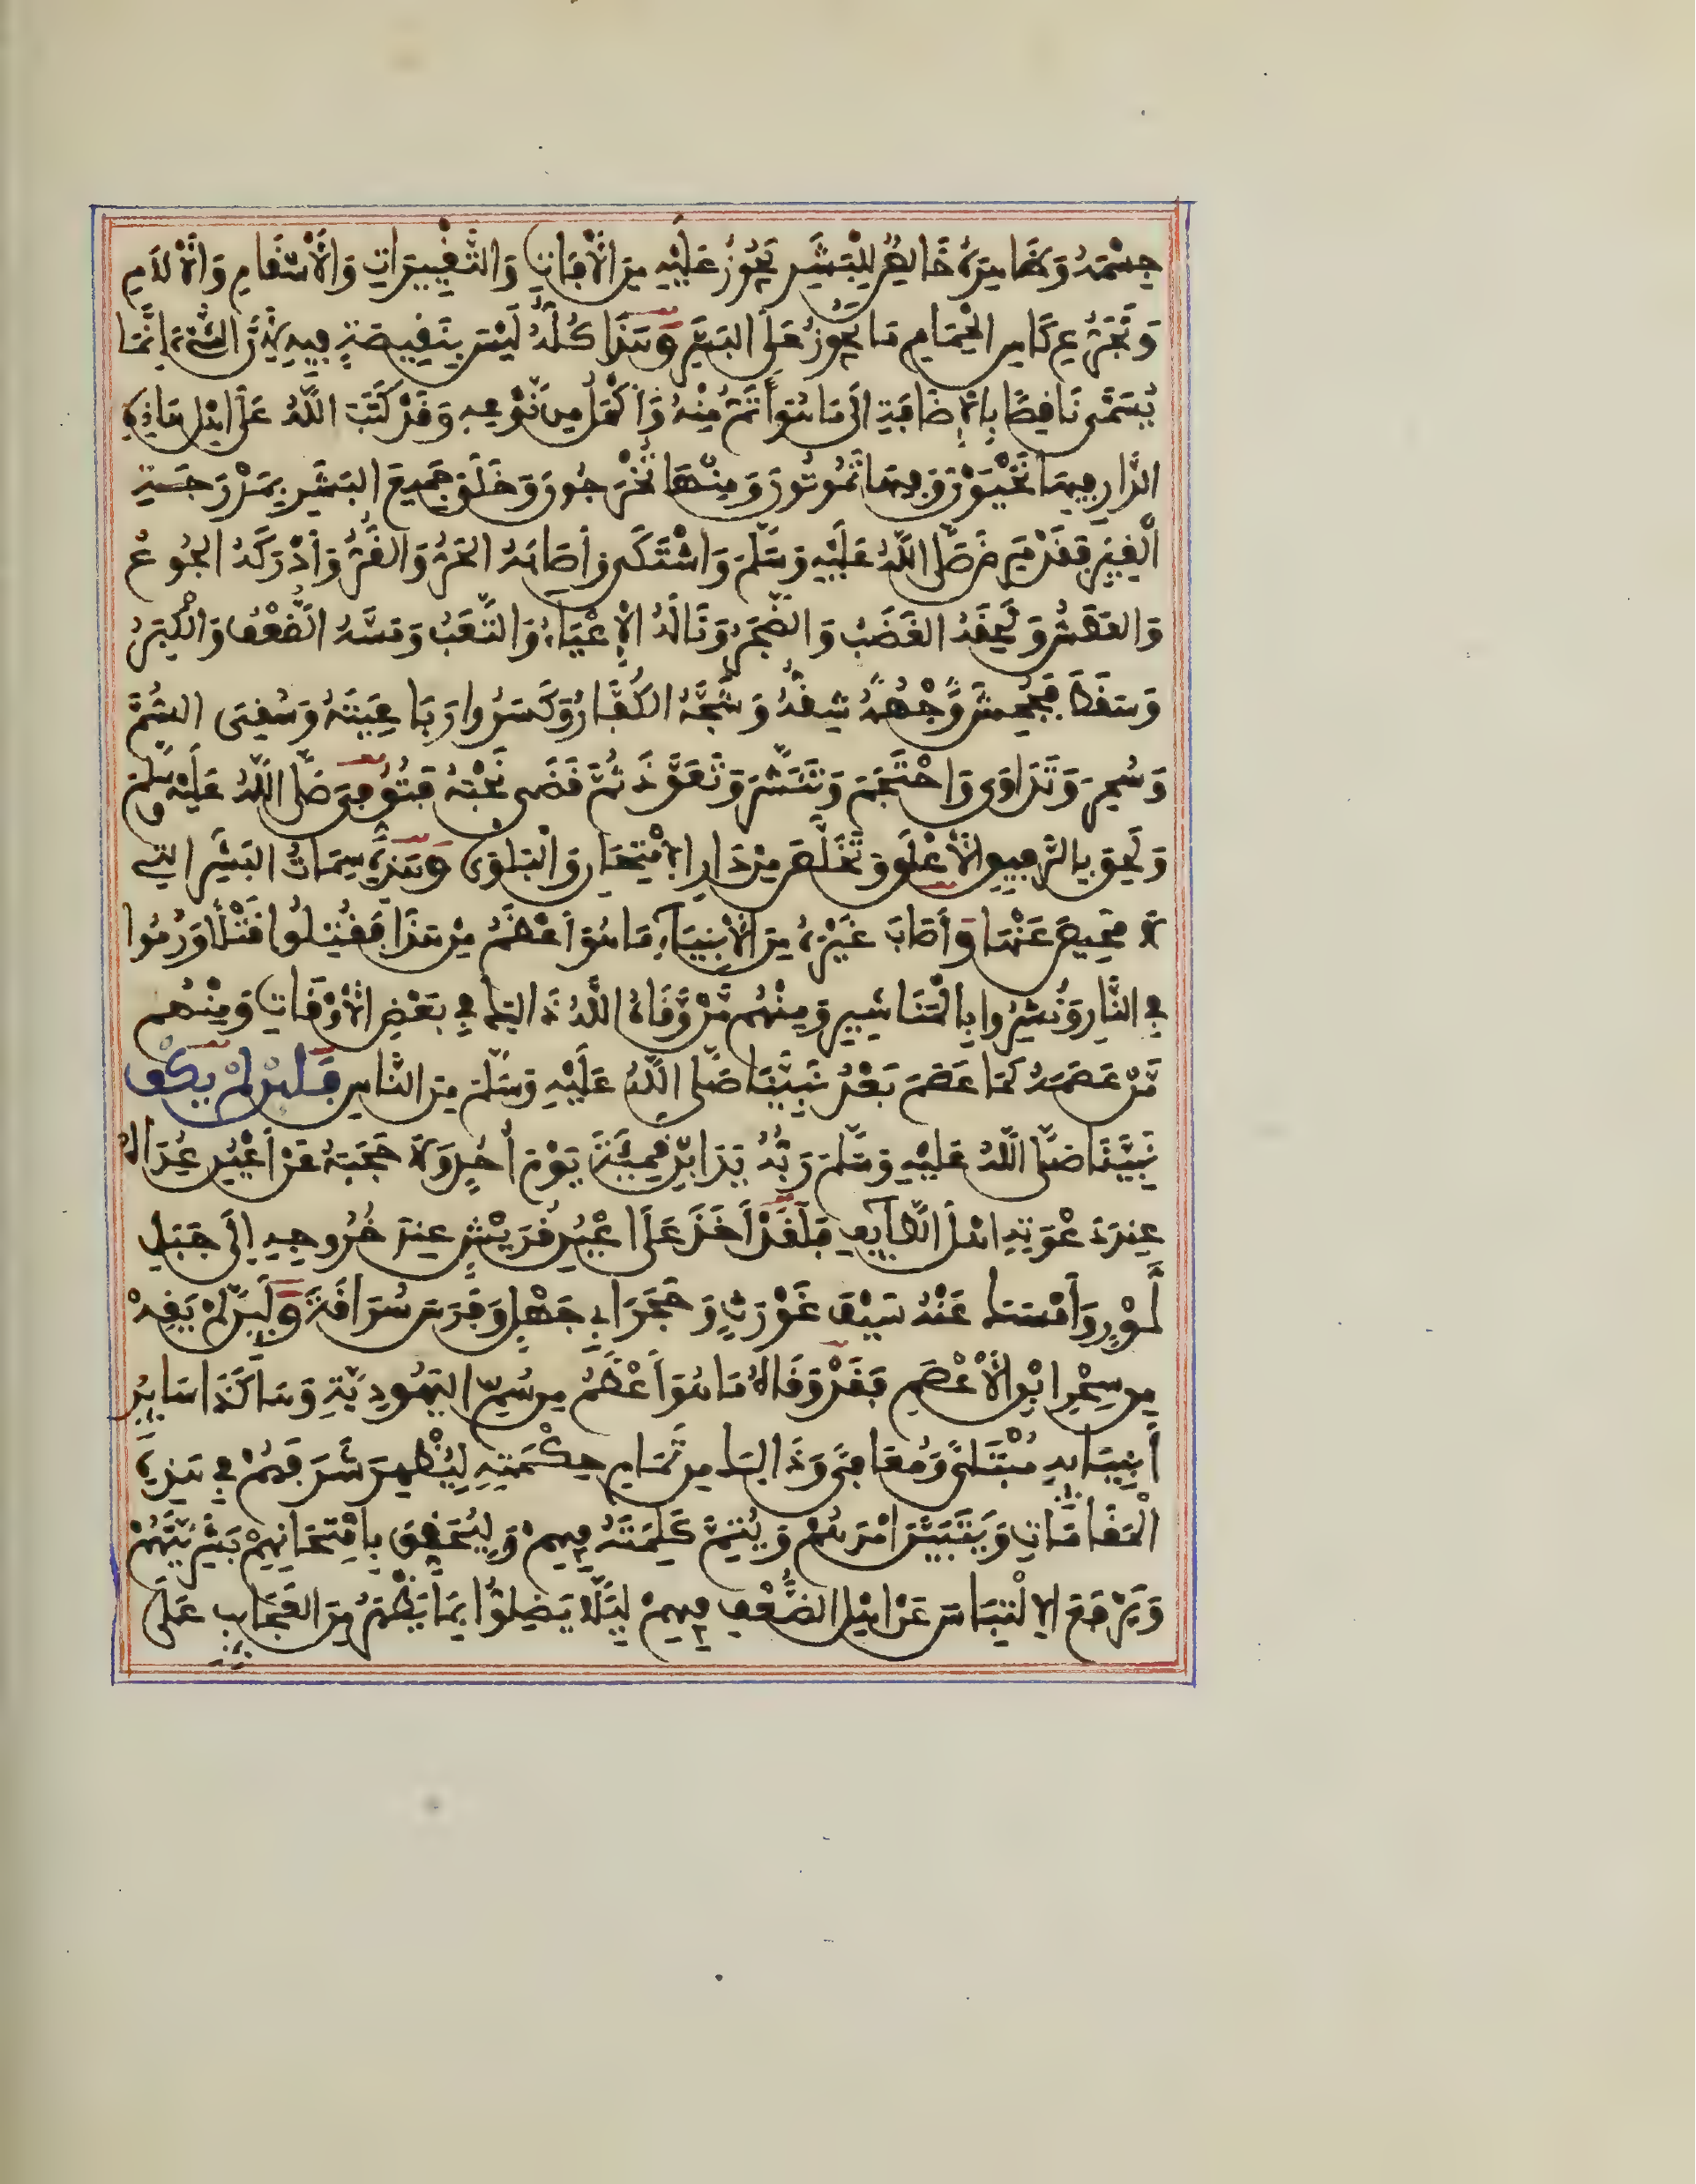 جِسْمُهُ وَظَاهِرُهُ خَالِصٌ لِلْبَشَرِ يَجُوزُ عَلَيْهِ مِنَ الْآفَاتِ وَالتَّغْيِيرَاتِ وَالْأَسْقَامِ وَالْآلَامِ
وَتَجَرُّعِ كَاسِ الْحِمَامِ مَا يَجُوزُ عَلَى الْبَشَرِ وَهَذَا كُلُّهُ لَيْسَ بِنَقِيصَةٍ فِيهِ لِأَنَّ الشَّيْءَ إِنَّمَا
يُسَمَّى نَاقِصًا بِالْإِضَافَةِ إِلَى مَا هُوَ أَتَمُّ مِنْهُ وَأَكْمَلُ مِنْ نَوْعِهِ وَقَدْ كَتَبَ اللَّهُ عَلَى أَهْلِ هَاذِهِ
الدَّارِ فِيهَا تَحْيَوْنَ وَفِيهَا تَمُوتُونَ وَمِنْهَا تُخْرَجُونَ وَخَلَقَ جَمِيعَ الْبَشَرِ بِمَدْرَجَةِ
الْغِيَرِ فَقَدْ مَرِضَ صَلَّى اللَّهُ عَلَيْهِ وَسَلَّمَ وَاشْتَكَى وَأَصَابَهُ الْحَرُّ وَالْقُرُّ وَأَدْرَكَهُ الْجُوعُ
وَالْعَطَشُ وَلَحِقَهُ الْغَضَبُ وَالضَّجَرُ وَنَالَهُ الْإِعْيَاءُ وَالتَّعَبُ وَمَسَّهُ الضُّعْفُ وَالْكِبَرُ
وَسَقَطَ فَجُحِشَ شِقُّهُ وَشَجَّهُ الْكُفَّارُ وَكَسَرُوا رَبَاعِيَتَهُ وَسُقِيَ السُّمَّ
وَسُحِرَ وَتَدَاوَى وَاحْتَجَمَ وَتَنَشَّرَ وَتَعَوَّذَ ثُمَّ قَضَى نَحْبَهُ فَتُوُفِّيَ صَلَّى اللَّهُ عَلَيْهِ وَسَلَّمَ
وَلَحِقَ بِالرَّفِيقِ الْأَعْلَى وَتَخَلَّصَ مِنْ دَارِ الِامْتِحَانِ وَالْبَلْوَى وَهَذِهِ سِمَاتُ الْبَشَرِ الَّتِي
لَا مَحِيصَ عَنْهَا وَأَصَابَ غَيْرَهُ مِنَ الْأَنْبِيَاءِ مَا هُوَ أَعْظَمُ مِنْ هَذَا فَقُتِلُوا قَتْلًا وَرُمُوا
فِي النَّارِ وَنُشِرُوا بِالْمَنَاشِيرِ وَمِنْهُمْ مَنْ وَقَاهُ اللَّهُ ذَالِكَ فِي بَعْضِ الْأَوْقَاتِ وَمِنْهُمْ
مَنْ عَصَمَهُ كَمَا عَصَمَ بَعْدُ نَبِيَّنَا صَلَّى اللَّهُ عَلَيْهِ وَسَلَّمَ مِنَ النَّاسِ فَلَئِنْ لَمْ يَكْفِ
نَبِيَّنَا صَلَّى اللَّهُ عَلَيْهِ وَسَلَّمَ رَبُّهُ يَدَ ابْنِ قَمِيئَةَ يَوْمَ أُحُدٍ وَلَا حَجَبَهُ عَنْ أَعْيُنِ عِدَاهُ
عِنْدَ دَعْوَتِهِ أَهْلَ الطَّائِفِ فَلَقَدْ أَخَذَ عَلَى أَعْيُنِ قُرَيْشٍ عِنْدَ خُرُوجِهِ إِلَى جَبَلِ
ثَوْرٍ وَأَمْسَكَ عَنْهُ سَيْفَ غَوْرَثٍ وَحَجَرَ أَبِي جَهْلٍ وَفَرَسَ سُرَاقَةَ وَلَئِنْ لَمْ يَقِهِ
مِنْ سِحْرِ ابْنِ الْأَعْصَمِ فَقَدْ وَقَاهُ مَا هُوَ أَعْظَمُ مِنْ سُمِّ الْيَهُودِيَّةِ وَهَاكَذَا سَائِرُ
أَنْبِيَائِهِ مُبْتَلًى وَمُعَافًى وَذَالِكَ مِنْ تَمَامِ حِكْمَتِهِ لِيُظْهِرَ شَرَفَهُمْ فِي هَذِهِ
الْمَقَامَاتِ وَيَتَبَيَّنَ أَمْرَهُمْ وَيُتِمَّ كَلِمَتَهُ فِيهِمْ وَلِيُحَقِّقَ بِامْتِحَانِهِمْ بَشَرِيَّتَهُمْ
وَيَرْفَعَ الِالْتِبَاسَ عَنْ أَهْلِ الضُّعْفِ فِيهِمْ لِئَلَّا يَضِلُّوا بِمَا يَظْهَرُ مِنَ الْعَجَائِبِ عَلَى